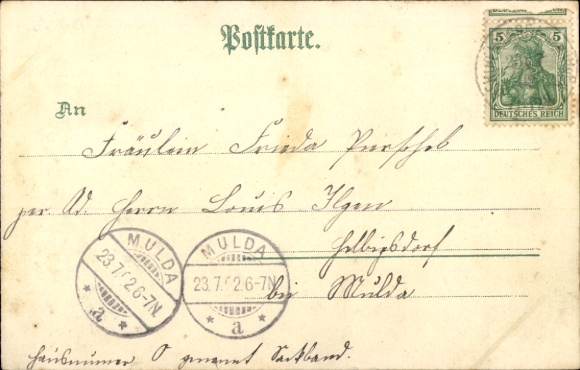 Postkarte.
5 5
DEUTSCHES REICH
An
Fräulein Frieda
per. Ad. Herrn Louis Ilgen
Helbigsdorf
bei Mulda
MULDA
23.7.02.6-7N
* a *
MULDA
23.7.02.6-7N
* a *
Hausnummer O genannt Sackband.